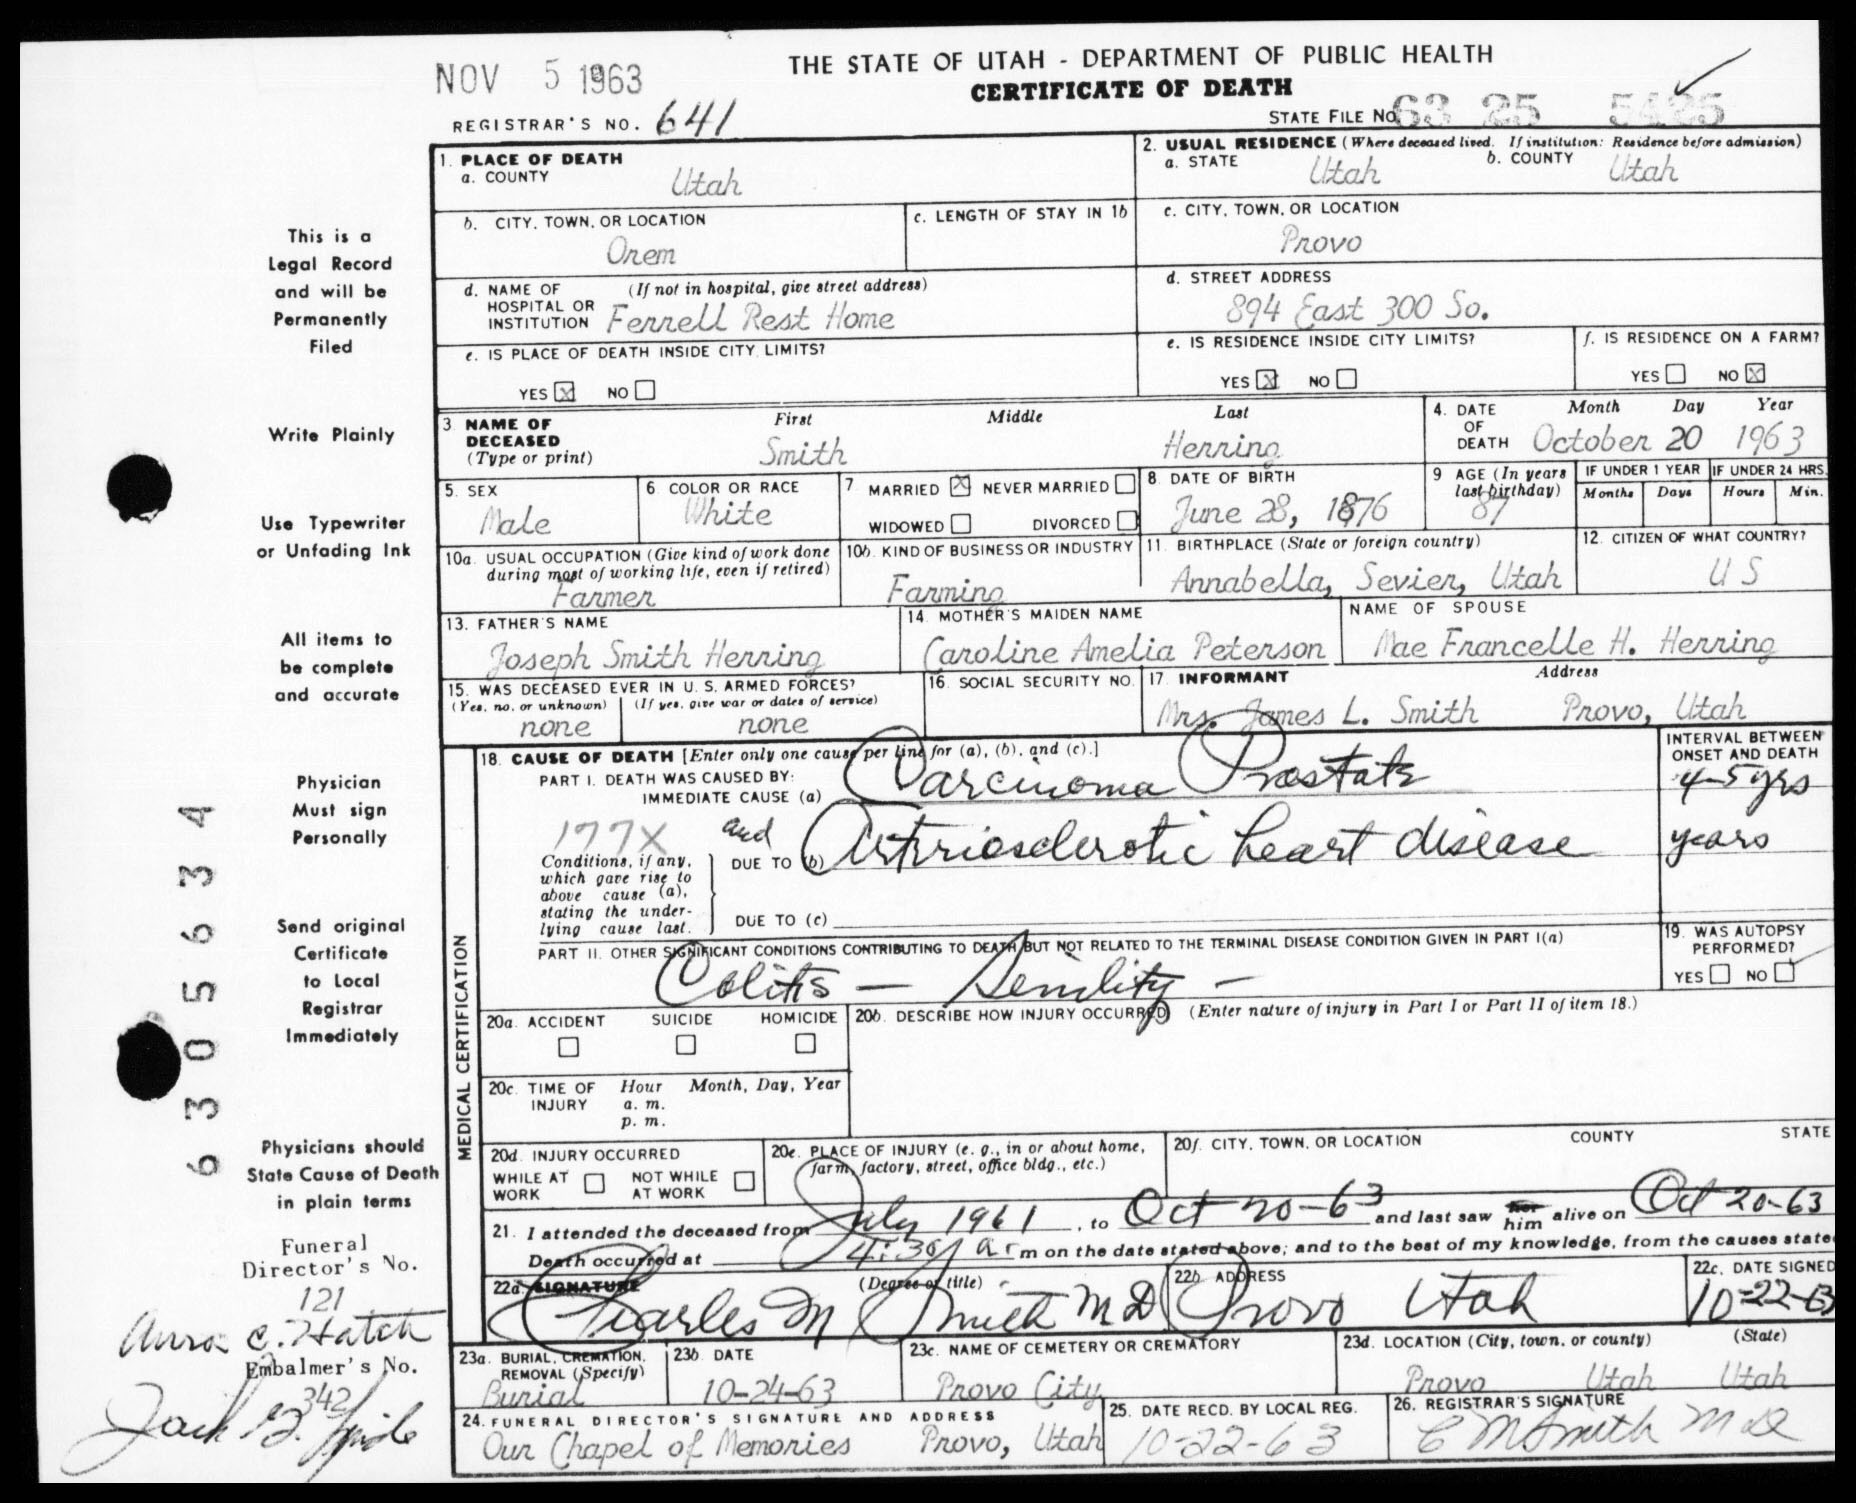 NOV 5 1963
THE STATE OF UTAH - DEPARTMENT OF PUBLIC HEALTH
CERTIFICATE OF DEATH
REGISTRAR'S NO. 641
STATE FILE NO. 63 25 5425
This is a
Legal Record
and will be
Permanently
Filed
Write Plainly
Use Typewriter
or Unfading Ink
All items to
be complete
and accurate
Physician
Must sign
Personally
Send original
Certificate
to Local
Registrar
Immediately
Physicians should
State Cause of Death
in plain terms
Funeral
Director's No.
121
C. Hatch
Embalmer's No.
342
Jack
6305634
1. PLACE OF DEATH
a. COUNTY Utah
2. USUAL RESIDENCE (Where deceased lived. If institution: Residence before admission)
a. STATE Utah b. COUNTY Utah
b. CITY, TOWN, OR LOCATION Orem
c. LENGTH OF STAY IN 1b
c. CITY, TOWN, OR LOCATION Provo
d. NAME OF HOSPITAL OR INSTITUTION (If not in hospital, give street address) Ferrell Rest Home
d. STREET ADDRESS 894 East 300 So.
e. IS PLACE OF DEATH INSIDE CITY LIMITS?
YES X NO
e. IS RESIDENCE INSIDE CITY LIMITS?
YES X NO
f. IS RESIDENCE ON A FARM?
YES NO X
3. NAME OF DECEASED (Type or print) First Middle Last
Smith Herring
4. DATE OF DEATH Month Day Year
October 20 1963
5. SEX Male
6. COLOR OR RACE White
7. MARRIED X NEVER MARRIED
WIDOWED DIVORCED
8. DATE OF BIRTH June 28, 1876
9. AGE (In years last birthday) 87
IF UNDER 1 YEAR Months Days
IF UNDER 24 HRS. Hours Min.
10a. USUAL OCCUPATION (Give kind of work done during most of working life, even if retired) Farmer
10b. KIND OF BUSINESS OR INDUSTRY Farming
11. BIRTHPLACE (State or foreign country) Annabella, Sevier, Utah
12. CITIZEN OF WHAT COUNTRY? U S
13. FATHER'S NAME Joseph Smith Herring
14. MOTHER'S MAIDEN NAME Caroline Amelia Peterson
NAME OF SPOUSE Mae Francelle H. Herring
15. WAS DECEASED EVER IN U. S. ARMED FORCES?
(Yes, no, or unknown) none (If yes, give war or dates of service) none
16. SOCIAL SECURITY NO.
17. INFORMANT Address
Mrs. James L. Smith Provo, Utah
MEDICAL CERTIFICATION
18. CAUSE OF DEATH [Enter only one cause per line for (a), (b), and (c).]
INTERVAL BETWEEN ONSET AND DEATH
PART I. DEATH WAS CAUSED BY:
IMMEDIATE CAUSE (a) Carcinoma Prostate 4-5 yrs
177X
and
DUE TO (b) Arteriosclerotic heart disease years
Conditions, if any,
which gave rise to
above cause (a),
stating the under-
lying cause last.
DUE TO (c)
PART II. OTHER SIGNIFICANT CONDITIONS CONTRIBUTING TO DEATH BUT NOT RELATED TO THE TERMINAL DISEASE CONDITION GIVEN IN PART I(a)
Colitis — Senility —
19. WAS AUTOPSY PERFORMED?
YES NO
20a. ACCIDENT SUICIDE HOMICIDE
20b. DESCRIBE HOW INJURY OCCURRED (Enter nature of injury in Part I or Part II of item 18.)
20c. TIME OF INJURY Hour Month, Day, Year
a. m.
p. m.
20d. INJURY OCCURRED
WHILE AT WORK NOT WHILE AT WORK
20e. PLACE OF INJURY (e. g., in or about home, farm, factory, street, office bldg., etc.)
20f. CITY, TOWN, OR LOCATION COUNTY STATE
21. I attended the deceased from July 1961, to Oct 20-63 and last saw her him alive on Oct 20-63
Death occurred at 4:30 a m on the date stated above; and to the best of my knowledge, from the causes state
22a. SIGNATURE (Degree or title) Charles M Smith MD
22b. ADDRESS Provo Utah
22c. DATE SIGNED 10-22-63
23a. BURIAL, CREMATION, REMOVAL (Specify) Burial
23b. DATE 10-24-63
23c. NAME OF CEMETERY OR CREMATORY Provo City
23d. LOCATION (City, town, or county) (State)
Provo Utah Utah
24. FUNERAL DIRECTOR'S SIGNATURE AND ADDRESS
Our Chapel of Memories Provo, Utah
25. DATE RECD. BY LOCAL REG. 10-22-63
26. REGISTRAR'S SIGNATURE C M Smith M D